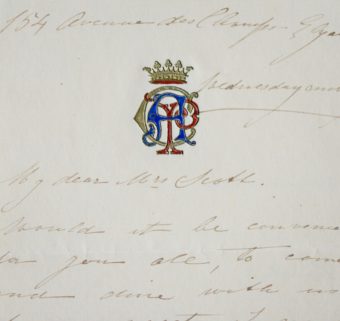 154 Avenue des Champs-Elysé
Wednesday
My dear Mrs Scott.
Would it be convenie
for you all, to come
and dine with us